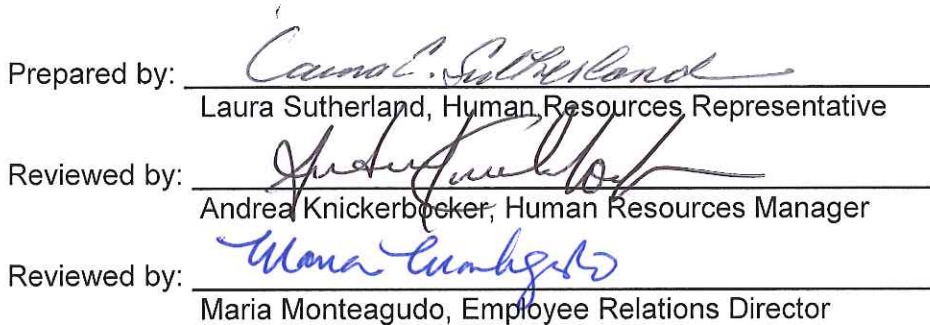 Prepared by: Laura C. Sutherland
Laura Sutherland, Human Resources Representative
Reviewed by: Andrea Knickerbocker
Andrea Knickerbocker, Human Resources Manager
Reviewed by: Maria Monteagudo
Maria Monteagudo, Employee Relations Director